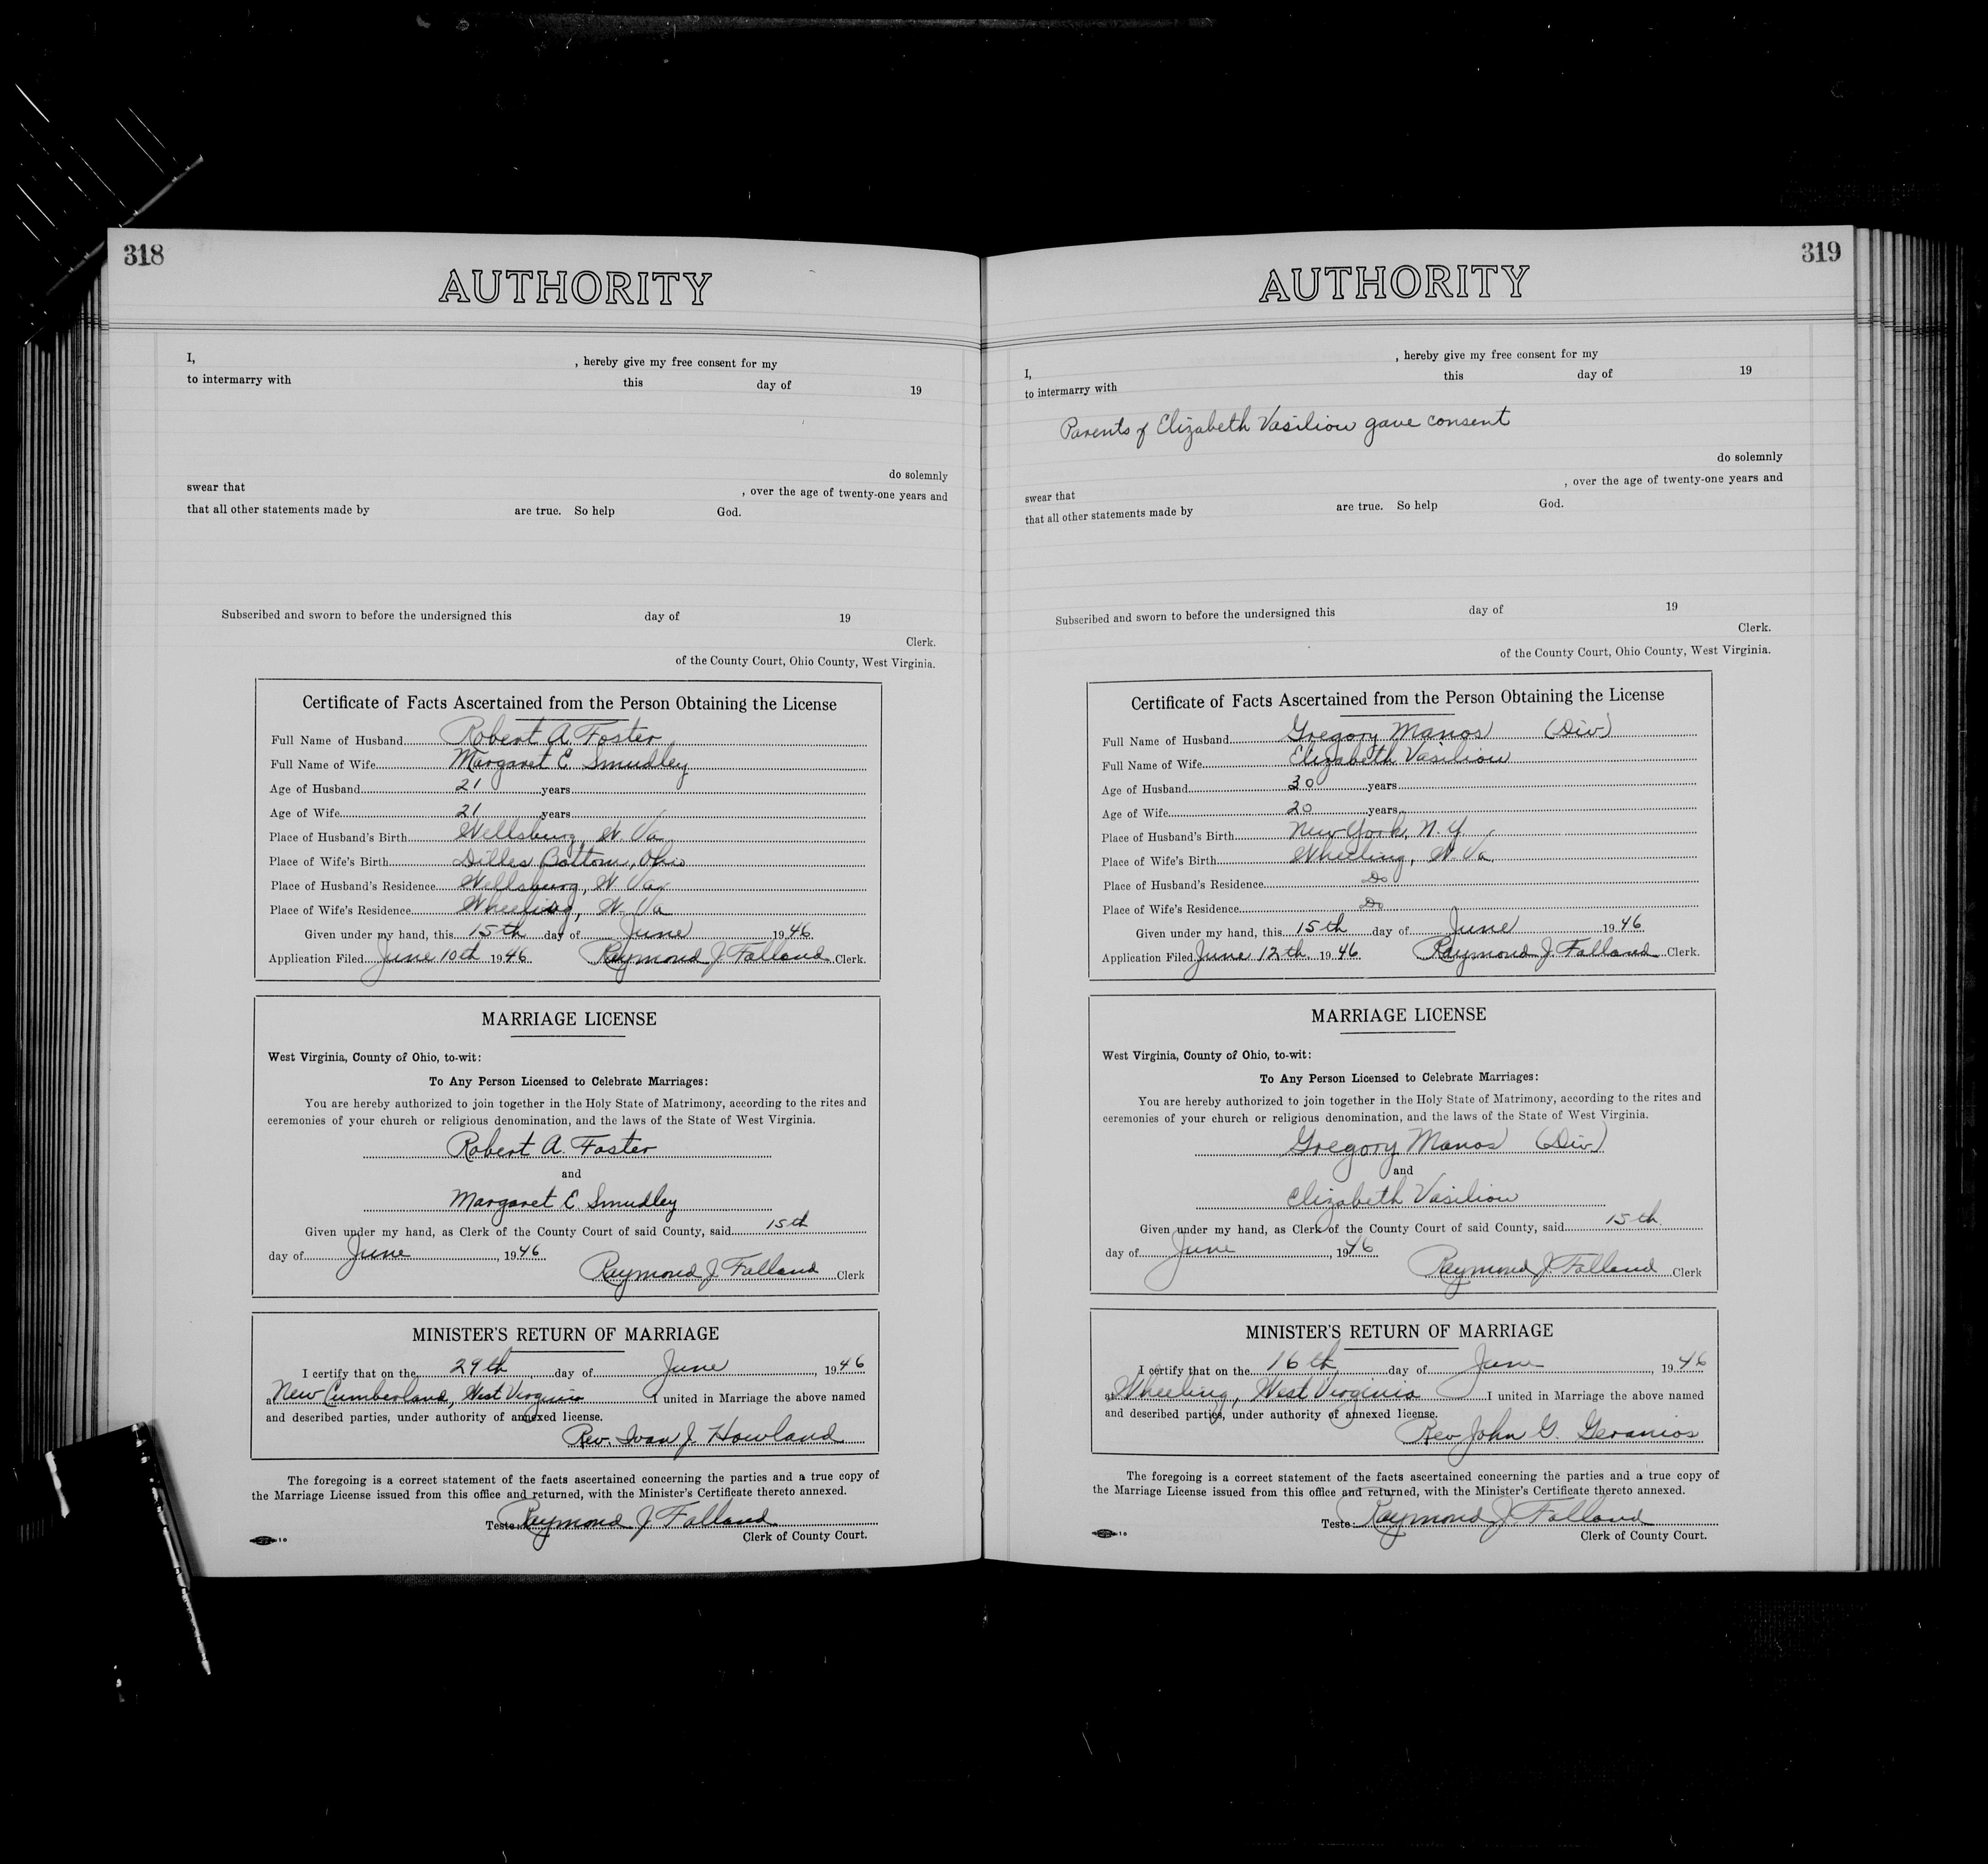 318
AUTHORITY
I, , hereby give my free consent for my
to intermarry with this day of 19
do solemnly
swear that , over the age of twenty-one years and
that all other statements made by are true. So help God.
Subscribed and sworn to before the undersigned this day of 19
Clerk.
of the County Court, Ohio County, West Virginia.
Certificate of Facts Ascertained from the Person Obtaining the License
Full Name of Husband Robert A. Foster
Full Name of Wife Margaret E. Smudley
Age of Husband 21 years
Age of Wife 21 years
Place of Husband's Birth Wellsburg, W. Va
Place of Wife's Birth Dilles Bottom, Ohio
Place of Husband's Residence Wellsburg, W. Va
Place of Wife's Residence Wheeling, W. Va
Given under my hand, this 15th day of June 1946
Application Filed June 10th 1946 Raymond J Falland Clerk.
MARRIAGE LICENSE
West Virginia, County of Ohio, to-wit:
To Any Person Licensed to Celebrate Marriages:
You are hereby authorized to join together in the Holy State of Matrimony, according to the rites and
ceremonies of your church or religious denomination, and the laws of the State of West Virginia.
Robert A. Foster
and
Margaret E. Smudley
Given under my hand, as Clerk of the County Court of said County, said 15th
day of June, 1946
Raymond J Falland Clerk
MINISTER'S RETURN OF MARRIAGE
I certify that on the 29th day of June, 1946
at New Cumberland, West Virginia I united in Marriage the above named
and described parties, under authority of annexed license.
Rev. Ivan J. Howland
The foregoing is a correct statement of the facts ascertained concerning the parties and a true copy of
the Marriage License issued from this office and returned, with the Minister's Certificate thereto annexed.
Teste: Raymond J Falland
Clerk of County Court.
319
AUTHORITY
I, , hereby give my free consent for my
to intermarry with this day of 19
Parents of Elizabeth Vasiliou gave consent
do solemnly
swear that , over the age of twenty-one years and
that all other statements made by are true. So help God.
Subscribed and sworn to before the undersigned this day of 19
Clerk.
of the County Court, Ohio County, West Virginia.
Certificate of Facts Ascertained from the Person Obtaining the License
Full Name of Husband Gregory Manos (Div)
Full Name of Wife Elizabeth Vasiliou
Age of Husband 30 years
Age of Wife 20 years
Place of Husband's Birth New York, N. Y.
Place of Wife's Birth Wheeling, W. Va.
Place of Husband's Residence Do
Place of Wife's Residence Do
Given under my hand, this 15th day of June 1946
Application Filed June 12th 1946 Raymond J. Falland Clerk.
MARRIAGE LICENSE
West Virginia, County of Ohio, to-wit:
To Any Person Licensed to Celebrate Marriages:
You are hereby authorized to join together in the Holy State of Matrimony, according to the rites and
ceremonies of your church or religious denomination, and the laws of the State of West Virginia.
Gregory Manos (Div)
and
Elizabeth Vasiliou
Given under my hand, as Clerk of the County Court of said County, said 15th
day of June, 1946
Raymond J. Falland Clerk
MINISTER'S RETURN OF MARRIAGE
I certify that on the 16th day of June, 1946
at Wheeling, West Virginia I united in Marriage the above named
and described parties, under authority of annexed license.
Rev John G. Geranios
The foregoing is a correct statement of the facts ascertained concerning the parties and a true copy of
the Marriage License issued from this office and returned, with the Minister's Certificate thereto annexed.
Teste: Raymond J Falland
Clerk of County Court.